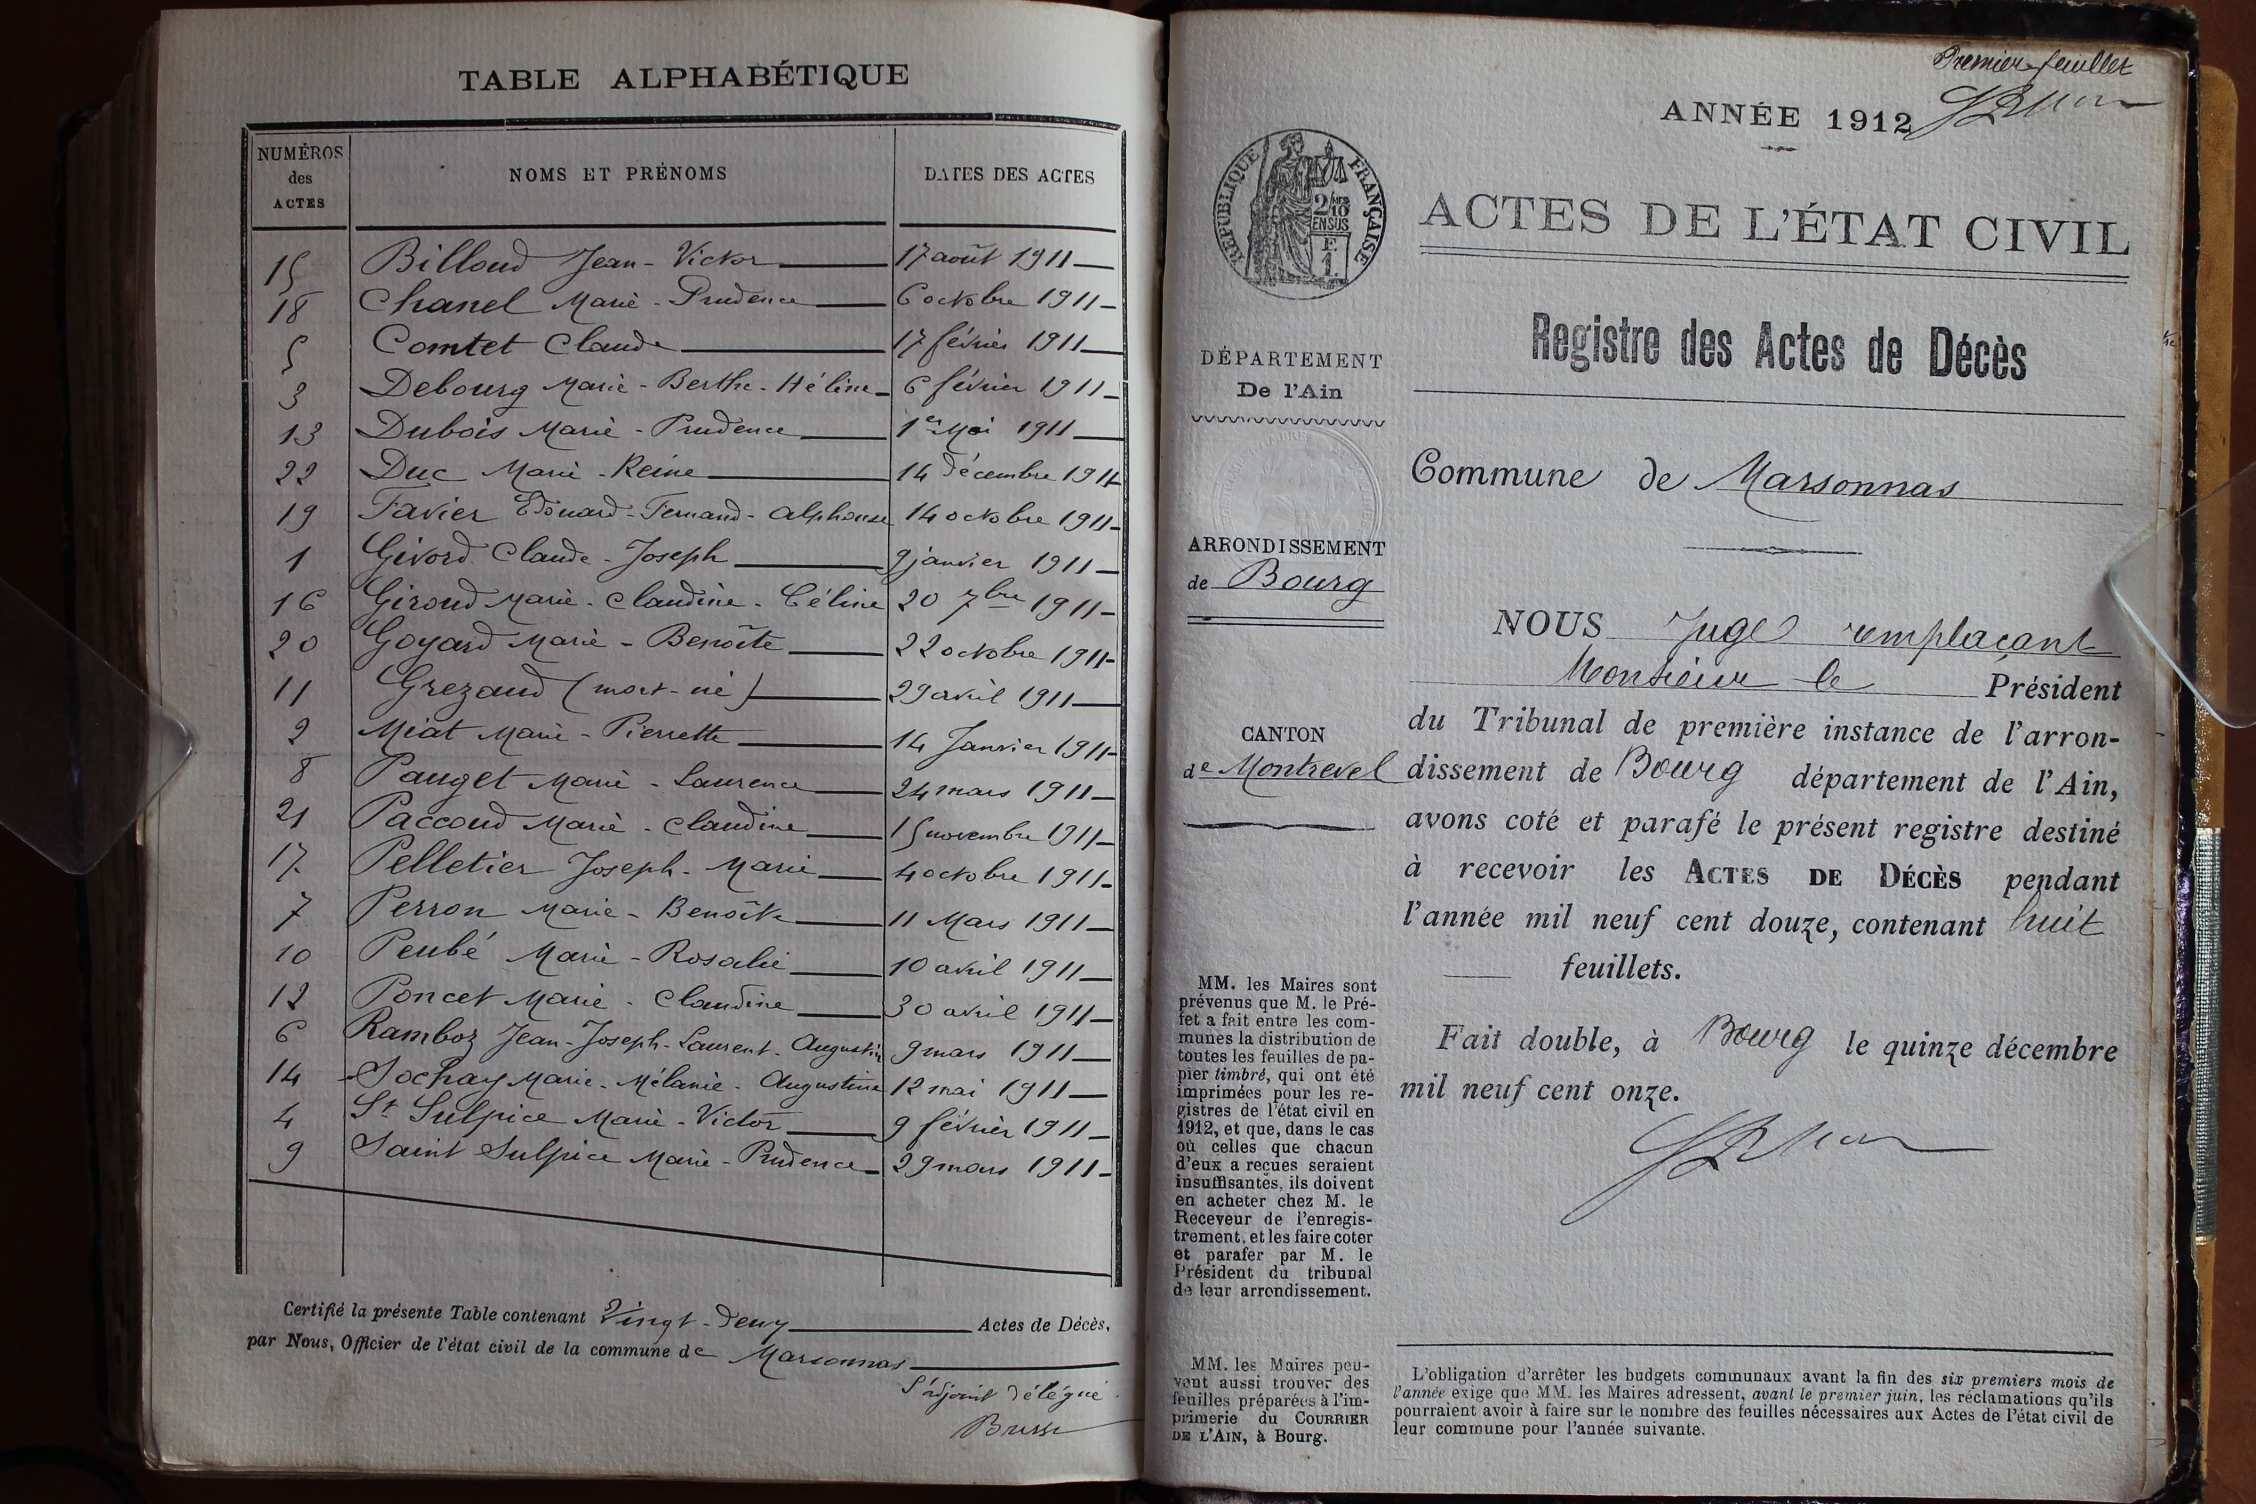 TABLE ALPHABÉTIQUE
NUMÉROS des ACTES NOMS ET PRÉNOMS DATES DES ACTES
15 Billoud Jean - Victor 17 août 1911
18 Chanel Marie - Prudence 6 octobre 1911
5 Comtet Claude 17 février 1911
3 Debourg Marie - Berthe - Héline 6 février 1911
13 Dubois Marie - Prudence 1er Mai 1911
22 Duc Marie - Reine 14 décembre 1911
19 Favier Edouard - Fernand - Alphonse 14 octobre 1911
1 Givord Claude - Joseph 9 janvier 1911
16 Giroud Marie - Claudine - Céline 20 7bre 1911
20 Goyard Marie - Benoîte 22 octobre 1911
11 Grezaud (mort-né) 29 avril 1911
2 Miat Marie - Pierrette 14 Janvier 1911
8 Pauget Marie - Laurence 24 mars 1911
21 Paccoud Marie - Claudine 15 novembre 1911
17 Pelletier Joseph - Marie 4 octobre 1911
7 Perron Marie - Benoîte 11 Mars 1911
10 Peubé Marie - Rosalie 10 avril 1911
12 Poncet Marie - Claudine 30 avril 1911
6 Ramboz Jean - Joseph - Laurent - Augustin 9 mars 1911
14 Sochay Marie - Mélanie - Augustine 12 mai 1911
4 St Sulpice Marie - Victor 9 février 1911
9 Saint Sulpice Marie - Prudence 29 mars 1911
Certifié la présente Table contenant Vingt-deux Actes de Décès,
par Nous, Officier de l'état civil de la commune de Marsonnas
L'adjoint délégué
Premier feuillet
ANNÉE 1912
RÉPUBLIQUE FRANÇAISE
2/10 EN SUS
F. 1.
ACTES DE L'ÉTAT CIVIL
Registre des Actes de Décès
DÉPARTEMENT
De l'Ain
Commune de Marsonnas
ARRONDISSEMENT
de Bourg
CANTON
de Montrevel
NOUS Juge remplaçant
Monsieur le Président
du Tribunal de première instance de l'arron-
dissement de Bourg département de l'Ain,
avons coté et parafé le présent registre destiné
à recevoir les ACTES DE DÉCÈS pendant
l'année mil neuf cent douze, contenant huit
feuillets.
Fait double, à Bourg le quinze décembre
mil neuf cent onze.
MM. les Maires sont
prévenus que M. le Pré-
fet a fait entre les com-
munes la distribution de
toutes les feuilles de pa-
pier timbré, qui ont été
imprimées pour les re-
gistres de l'état civil en
1912, et que, dans le cas
où celles que chacun
d'eux a reçues seraient
insuffisantes, ils doivent
en acheter chez M. le
Receveur de l'enregis-
trement, et les faire coter
et parafer par M. le
Président du tribunal
de leur arrondissement.
MM. les Maires peu-
vent aussi trouver des
feuilles préparées à l'im-
primerie du COURRIER
DE L'AIN, à Bourg.
L'obligation d'arrêter les budgets communaux avant la fin des six premiers mois de
l'année exige que MM. les Maires adressent, avant le premier juin, les réclamations qu'ils
pourraient avoir à faire sur le nombre des feuilles nécessaires aux Actes de l'état civil de
leur commune pour l'année suivante.